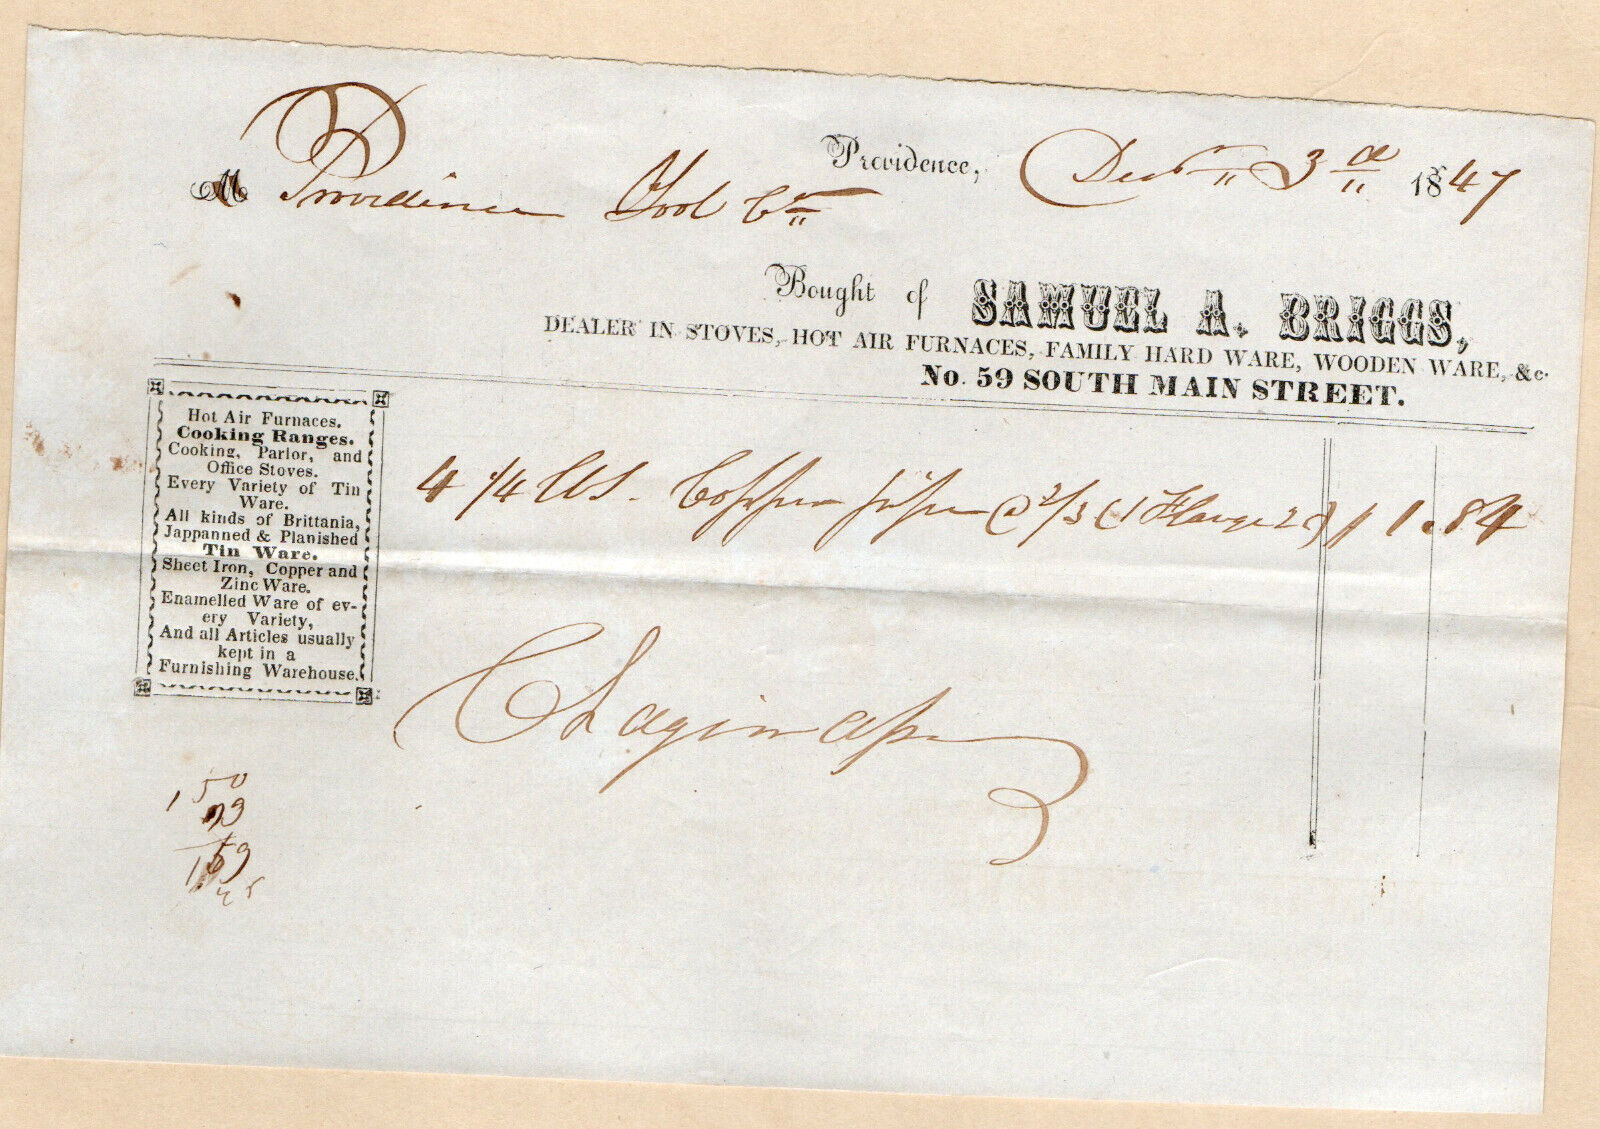 Providence, Decr 3d 1847
M Providence Tool Co
Bought of SAMUEL A. BRIGGS,
DEALER IN STOVES, HOT AIR FURNACES, FAMILY HARD WARE, WOODEN WARE, &c.
No. 59 SOUTH MAIN STREET.
Hot Air Furnaces.
Cooking Ranges.
Cooking, Parlor, and
Office Stoves.
Every Variety of Tin
Ware.
All kinds of Brittania,
Jappanned & Planished
Tin Ware.
Sheet Iron, Copper and
Zinc Ware.
Enamelled Ware of ev-
ery Variety,
And all Articles usually
kept in a
Furnishing Warehouse.
4 1/4 lbs. Copper pipe @ 2/3 (1 Flange 2 1.84
1 50
1 59